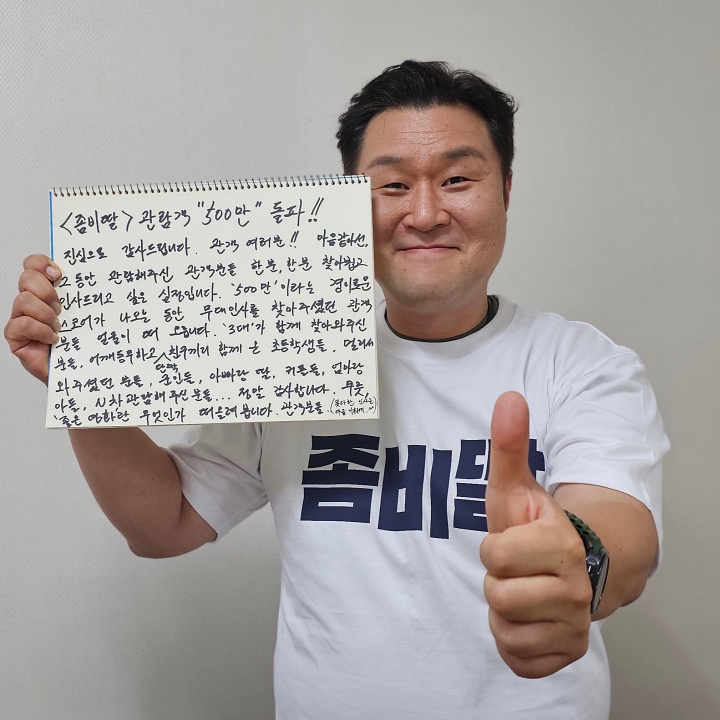 <좀비딸> 관람객 "500만" 돌파!!
진심으로 감사드립니다. 관객 여러분!! 마음같아선,
그동안 관람해주신 관객분들 한분, 한분 찾아뵙고
인사드리고 싶은 심정입니다. '500만'이라는 경이로운
스코어가 나오는 동안 무대인사를 찾아주셨던 관객
분들 얼굴이 떠 오릅니다. '3대'가 함께 찾아와주신
분들, 어깨동무하고 단짝 친구끼리 함께 온 초등학생들, 멀리서
와주셨던 분들, 군인들, 아빠랑 딸, 커플들, 엄마랑
아들, N차 관람해 주신 분들... 정말 감사합니다. 무릇,
좋은 영화란 무엇인가 떠올려봅니다. 관객분들.
좀비딸